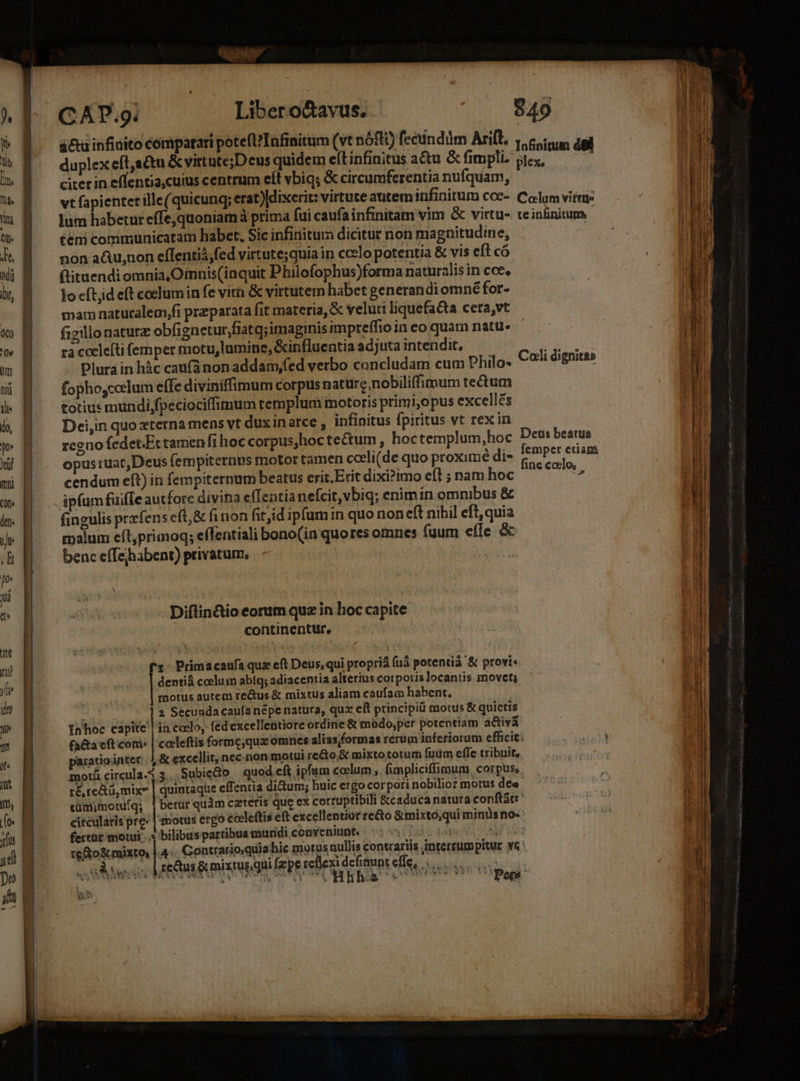 CAP.9. Liber octauus. 849
actu infinito comparari potest? Infinitum (vt nósti) secundùm Arist.
duplex est, actu & virtute; Deus quidem est infinitus actu & simpli-
citer in essentia, cuius centrum est vbiq; & circumferentia nusquam,
vt sapienter ille (quicunq; erat) dixerit: virtute autem infinitum coe-
lum habetur esse, quoniam à prima sui causa infinitam vim & virtu-
tem communicatam habet. Sic infinitum dicitur non magnitudine,
non actu, non essentiâ, sed virtute; quia in coelo potentia & vis est cô
stituendi omnia, Omnis (inquit Philosophus) forma naturalis in coe-
lo est, id est coelum in se vim & virtutem habet generandi omnê for-
mam naturalem, si præparata sit materia, & veluti liquefacta cera, vt
sigillo naturæ obsignetur, fiatq; imaginis impressio in eo quam natu-
ra coelesti semper motu, lumine, & influentia adjuta intendit.
Plura in hâc causâ non addam, sed verbo concludam cum Philo-
sopho, coelum esse divinissimum corpus naturę, nobilissimum tectum
totius mundi, speciosissimum templum motoris primi, opus excellês
Dei, in quo æterna mens vt dux in arce, infinitus spiritus vt rex in
regno sedet. Et tamen si hoc corpus, hoc tectum, hoc templum, hoc
opus ruat, Deus sempiternus motor tamen coeli (de quo proximè di-
cendum est) in sempiternum beatus erit. Erit dixi? imo est; nam hoc
ipsum fuisse aut fore divina essentia nescit, vbiq; enim in omnibus &
singulis præsens est, & si non sit, id ipsum in quo non est nihil est, quia
malum est, primoq; essentiali bono (in quo res omnes suum esse &
bene esse habent) privatum.
Infinitum du-
plex.
Coelum virtu-
te infinitum
Coeli dignitas
Deus beatus
semper etiam
sine coelo.
Distinctio eorum quæ in hoc capite
continentur.
In hoc capite
facta est com-
paratio inter
motû circula-
rê, rectû, mix-
tûm; motusq;
circularis prę-
fertur motui
recto & mixto,
1 Prima causa quæ est Deus, qui propriâ suâ potentiâ & provi-
dentiâ coelum absq; adiacentia alterius corporis locantis movet;
motus autem rectus & mixtus aliam causam habent.
2 Secunda causa nêpe natura, quæ est principiû motus & quietis
in coelo, sed excellentiore ordine & modo, per potentiam activâ
coelestis formę, quæ omnes alias formas rerum inferiorum efficit
& excellit, nec non motui recto & mixto totum suûm esse tribuit.
3. Subiecto quod est ipsum coelum, simplicissimum corpus,
quintaque essentia dictum; huic ergo corpori nobilior motus de-
betur quàm cæteris quę ex corruptibili & caduca natura constât:
motus ergo coelestis est excellentior recto & mixto, qui minùs no-
bilibus partibus mundi conveniunt.
4. Contrario, quia hic motus nullis contrariis interrumpitur vt
rectus & mixtus, qui sæpe reflexi definunt esse.
Hhh 2